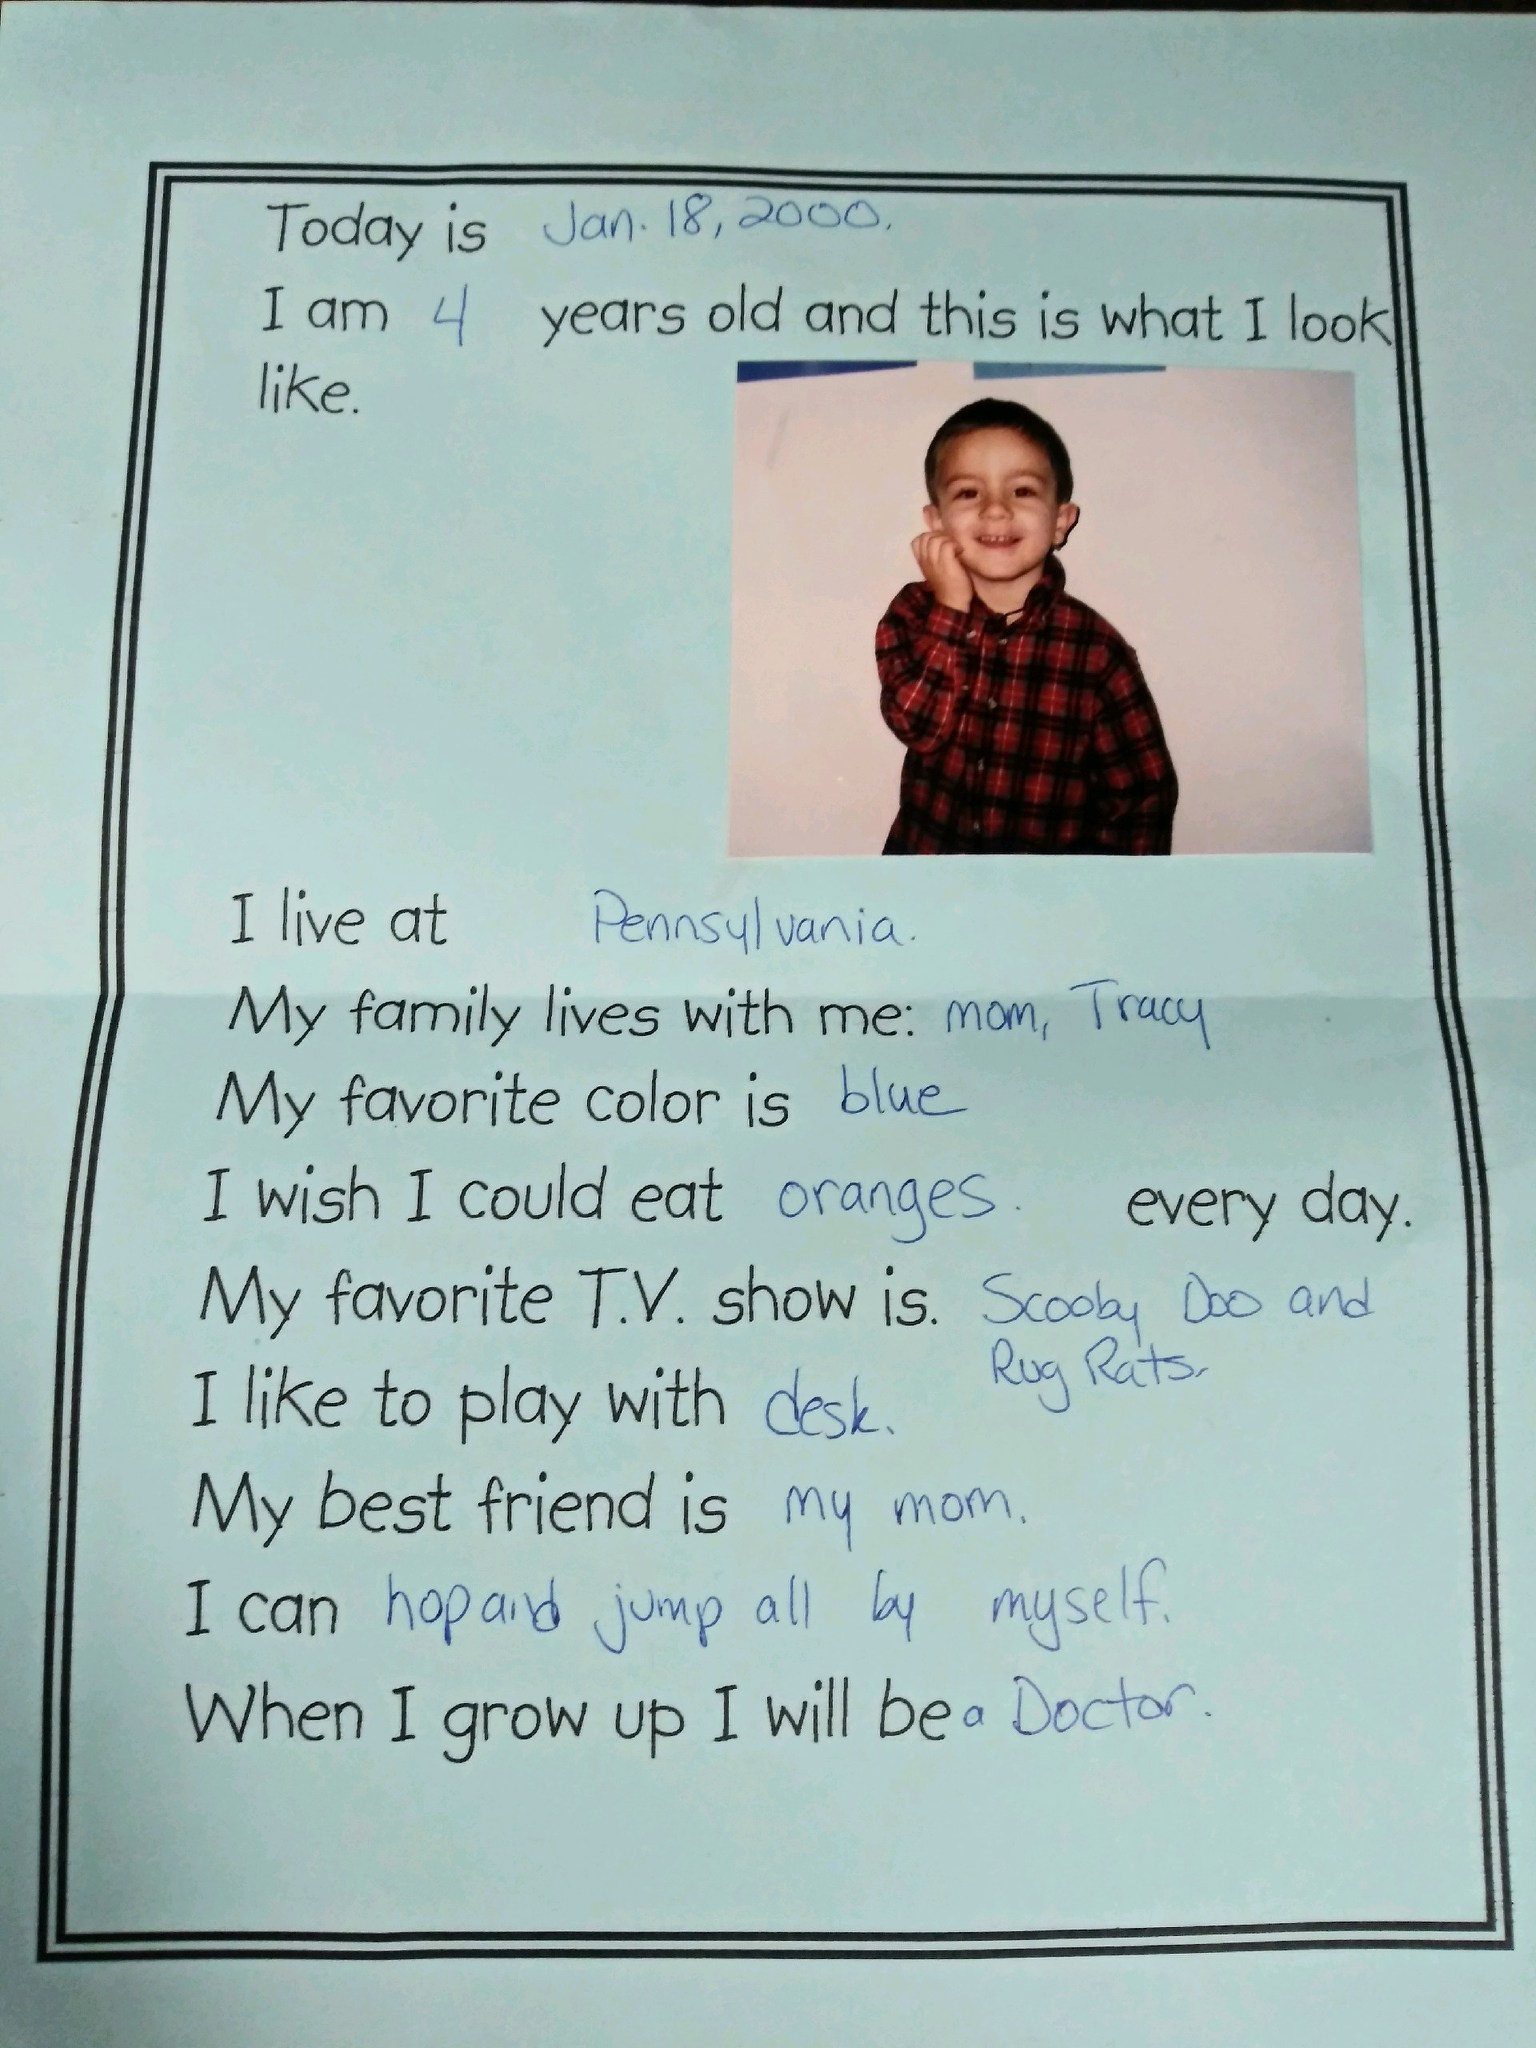 Today is Jan. 18, 2000.
I am 4 years old and this is what I look
like.
I live at Pennsylvania.
My family lives with me: mom, Tracy
My favorite color is blue
I wish I could eat oranges. every day.
My favorite T.V. show is. Scooby Doo and
Rug Rats.
I like to play with desk.
My best friend is my mom.
I can hop and jump all by myself.
When I grow up I will be a Doctor.